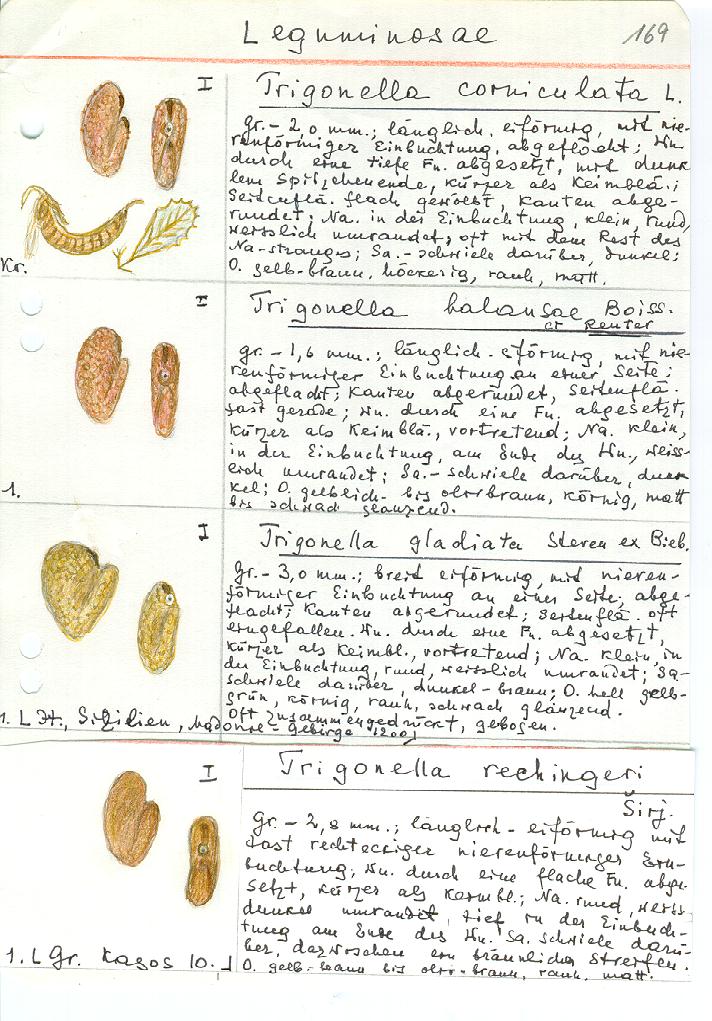 Leguminosae
169
I
Trigonella corniculata L.
gr. - 2,0 mm.; länglich, eiförmig, mit nie-
renförmiger Einbuchtung, abgeflacht; Wu.
durch eine tiefe Fu. abgesetzt, mit dunk-
lem Spitzchenende, kürzer als Keimblä.;
Seitenflä. flach gewölbt, Kanten abge-
rundet; Na. in der Einbuchtung, klein, rund,
weisslich umrandet, oft mit dem Rest des
Na-stranges; Sa.-schwiele darüber, dunkel;
O. gelb-braun, höckerig, rauh, matt.
Kr.
I
Trigonella balansae Boiss.
et Reuter
gr. - 1,6 mm.; länglich-eiförmig, mit nie-
renförmiger Einbuchtung an einer Seite;
abgeflacht; Kanten abgerundet, Seitenflä.
fast gerade; Wu. durch eine Fu. abgesetzt,
kürzer als Keimblä., vortretend; Na. klein,
in der Einbuchtung, am Ende der Wu., weiss-
lich umrandet; Sa.-schwiele darüber, dunk-
kel; O. gelblich- bis olivbraun, körnig, matt
bis schwach glänzend.
1.
I
Trigonella gladiata Steven ex Bieb.
Gr. - 3,0 mm.; breit eiförmig, mit nieren-
förmiger Einbuchtung an einer Seite, abge-
flacht; Kanten abgerundet; Seitenflä. oft
eingefallen. Wu. durch eine Fu. abgesetzt,
kürzer als Keimbl., vortretend; Na. klein, in
der Einbuchtung, rund, weisslich umrandet; Sa-
schwiele darüber, dunkel-braun; O. hell gelb-
grün, körnig, rauh, schwach glänzend.
Oft zusammengedrückt, gebogen.
1. L It., Sizilien, Madonie-Gebirge 1200 J
I
Trigonella rechingeri
Širj.
gr. - 2,8 mm.; länglich-eiförmig mit
fast rechteckiger nierenförmiger Ein-
buchtung; Wu. durch eine flache Fu. abge-
setzt, kürzer als Keimbl.; Na. rund, weiss
dunkel umrandet, tief in der Einbuch-
tung am Ende des Wu. Sa. schwiele darü-
ber, dazwischen ein bräunlicher Streifen.
O. gelb-braun bis oliv-braun, rauh, matt.
1. L Gr. Kasos 10. J